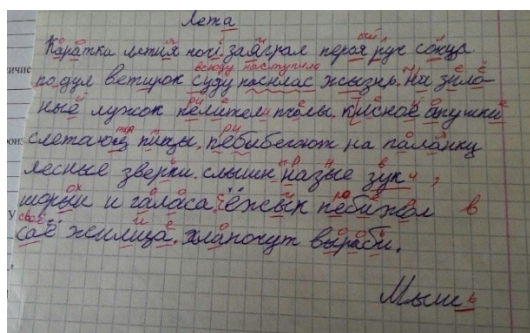 Лета
Каратка летия ночі заяграл перая руч сонца
по дул ветирок суду посилас жызнь. На зило
ные лужок пелители пчолы. К лисной апушки
слетающ пицы, пебибегают на паланку
лесные зверки. слышн назые зук
шорыи и галаса. ёжык пебижал в
саё жилища. хлапочут выраби.
Мыши